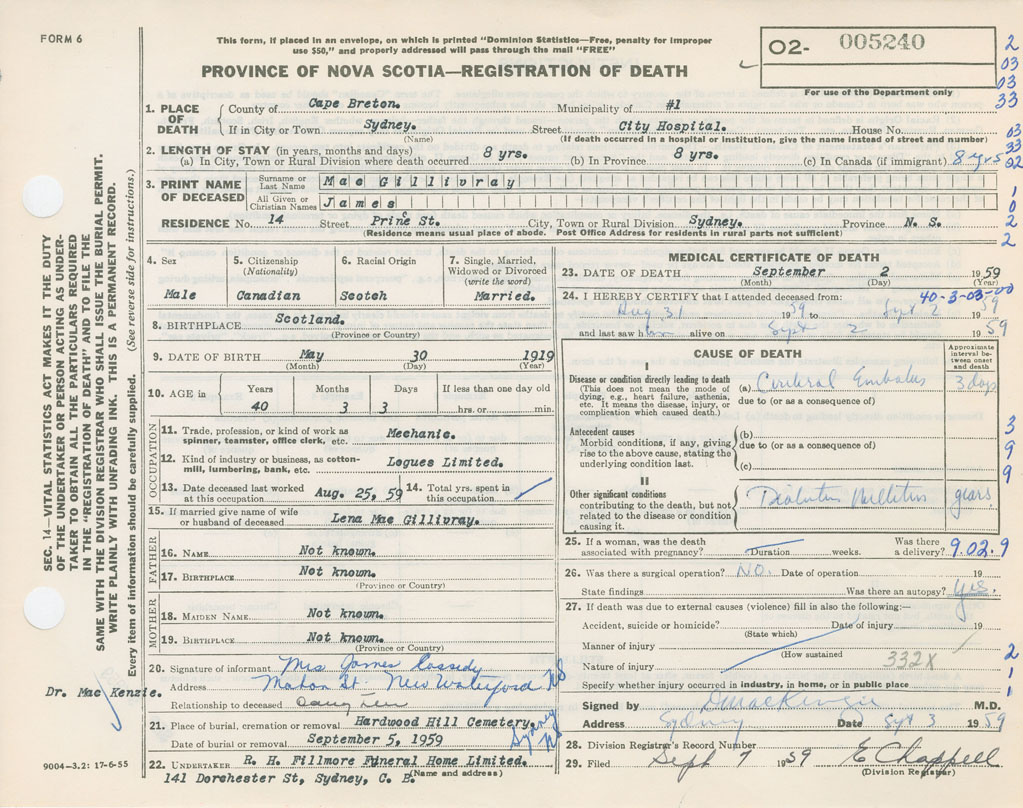 FORM 6
This form, if placed in an envelope, on which is printed "Dominion Statistics—Free, penalty for improper
use $50," and properly addressed will pass through the mail "FREE"
O2- 005240
For use of the Department only
PROVINCE OF NOVA SCOTIA—REGISTRATION OF DEATH
2
03
03
33
03
33
02
1
0
2
2
1. PLACE OF DEATH
County of Cape Breton. Municipality of #1
If in City or Town Sydney. Street City Hospital. House No.
(Name) (If death occurred in a hospital or institution, give the name instead of street and number)
2. LENGTH OF STAY (in years, months and days)
(a) In City, Town or Rural Division where death occurred 8 yrs. (b) In Province 8 yrs. (c) In Canada (if immigrant) 8 yrs
3. PRINT NAME OF DECEASED
Surname or Last Name Mac Gillivray
All Given or Christian Names James
RESIDENCE No. 14 Street Prince St. City, Town or Rural Division Sydney. Province N. S.
(Residence means usual place of abode. Post Office Address for residents in rural parts not sufficient)
4. Sex
Male
5. Citizenship
(Nationality)
Canadian
6. Racial Origin
Scotch
7. Single, Married,
Widowed or Divorced
(write the word)
Married.
8. BIRTHPLACE Scotland.
(Province or Country)
9. DATE OF BIRTH May 30 1919
(Month) (Day) (Year)
10. AGE in
Years Months Days If less than one day old
40 3 3 hrs. or min.
OCCUPATION
11. Trade, profession, or kind of work as
spinner, teamster, office clerk, etc. Mechanic.
12. Kind of industry or business, as cotton-
mill, lumbering, bank, etc. Logues Limited.
13. Date deceased last worked
at this occupation Aug. 25, 59
14. Total yrs. spent in
this occupation
15. If married give name of wife
or husband of deceased Lena Mac Gillivray.
FATHER
16. NAME Not known.
17. BIRTHPLACE Not known.
(Province or Country)
MOTHER
18. MAIDEN NAME Not known.
19. BIRTHPLACE Not known.
(Province or Country)
20. Signature of informant Mrs James Cassidy
Address Mahon St. New Waterford NS
Relationship to deceased
21. Place of burial, cremation or removal Hardwood Hill Cemetery, Sydney NS
Date of burial or removal September 5, 1959
22. UNDERTAKER R. H. Fillmore Funeral Home Limited.
(Name and address)
141 Dorchester St, Sydney, C. B.
MEDICAL CERTIFICATE OF DEATH
23. DATE OF DEATH September 2 1959
(Month) (Day) (Year)
40-3-03-00
24. I HEREBY CERTIFY that I attended deceased from:
Aug 31 1959 to Sept 2 1959
and last saw h alive on Sept 2 1959
CAUSE OF DEATH
Approximate
interval be-
tween onset
and death
I
Disease or condition directly leading to death
(This does not mean the mode of
dying, e.g., heart failure, asthenia,
etc. It means the disease, injury, or
complication which caused death.)
(a) Cerebral Embolus 3 days
due to (or as a consequence of)
Antecedent causes
Morbid conditions, if any, giving
rise to the above cause, stating the
underlying condition last.
(b)
due to (or as a consequence of)
(c)
3
9
9
II
Other significant conditions
contributing to the death, but not
related to the disease or condition
causing it.
Diabetes Mellitus years
25. If a woman, was the death
associated with pregnancy? Duration weeks.
Was there
a delivery? 9.02.9
26. Was there a surgical operation? NO. Date of operation 19
State findings Was there an autopsy? Yes.
27. If death was due to external causes (violence) fill in also the following:—
Accident, suicide or homicide? Date of injury 19
(State which)
Manner of injury
(How sustained
Nature of injury 332X
2
1
1
Specify whether injury occurred in industry, in home, or in public place
Signed by D MacKenzie M.D.
Address Sydney Date Sept 3 1959
28. Division Registrar's Record Number
29. Filed Sept 7 1959 E Chappell
(Division Registrar)
SEC. 14—VITAL STATISTICS ACT MAKES IT THE DUTY
OF THE UNDERTAKER OR PERSON ACTING AS UNDER-
TAKER TO OBTAIN ALL THE PARTICULARS REQUIRED
IN THE "REGISTRATION OF DEATH" AND TO FILE THE
SAME WITH THE DIVISION REGISTRAR WHO SHALL ISSUE THE BURIAL PERMIT.
WRITE PLAINLY WITH UNFADING INK. THIS IS A PERMANENT RECORD.
Every item of information should be carefully supplied. (See reverse side for instructions.)
Dr. Mac Kenzie.
9004-3.2: 17-6-55